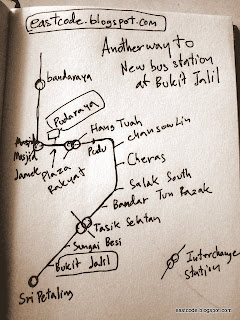 eastcode.blogspot.com
Another way to
New bus station
at Bukit Jalil
bandaraya
Pudaraya
Masjid
Masjid
Jamek
Plaza
Rakyat
Hang Tuah
Pudu
chansowLin
Cheras
Salak South
Bandar Tun Razak
Tasik Selatan
Sungai Besi
Bukit Jalil
Sri Petaling
Interchange
station
eastcode.blogspot.com